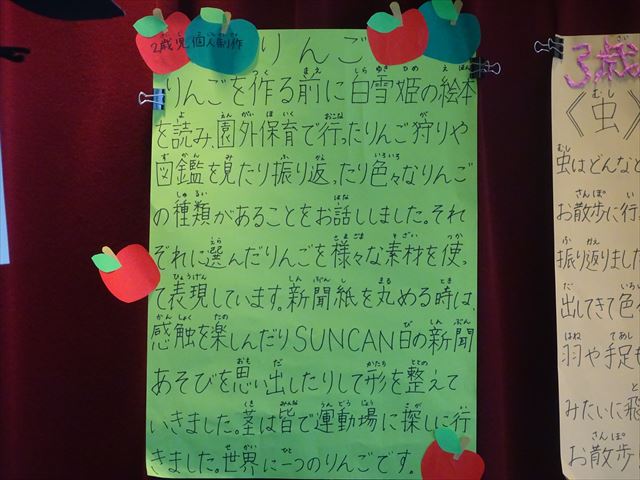 2歳児 個人制作
りんご
りんごを作る前に白雪姫の絵本
を読み、園外保育で行ったりんご狩りや
図鑑を見たり振り返ったり色々なりんご
の種類があることをお話ししました。それ
ぞれに選んだりんごを様々な素材を使っ
て表現しています。新聞紙を丸める時は、
感触を楽しんだりSUNCAN日の新聞
あそびを思い出したりして形を整えて
いきました。茎は皆で運動場に探しに行
きました。世界に一つのりんごです。
3歳
《虫》
虫はどんなと
お散歩に行
振り返りました
出してきて色
羽や手足も
みたいに飛
お散歩